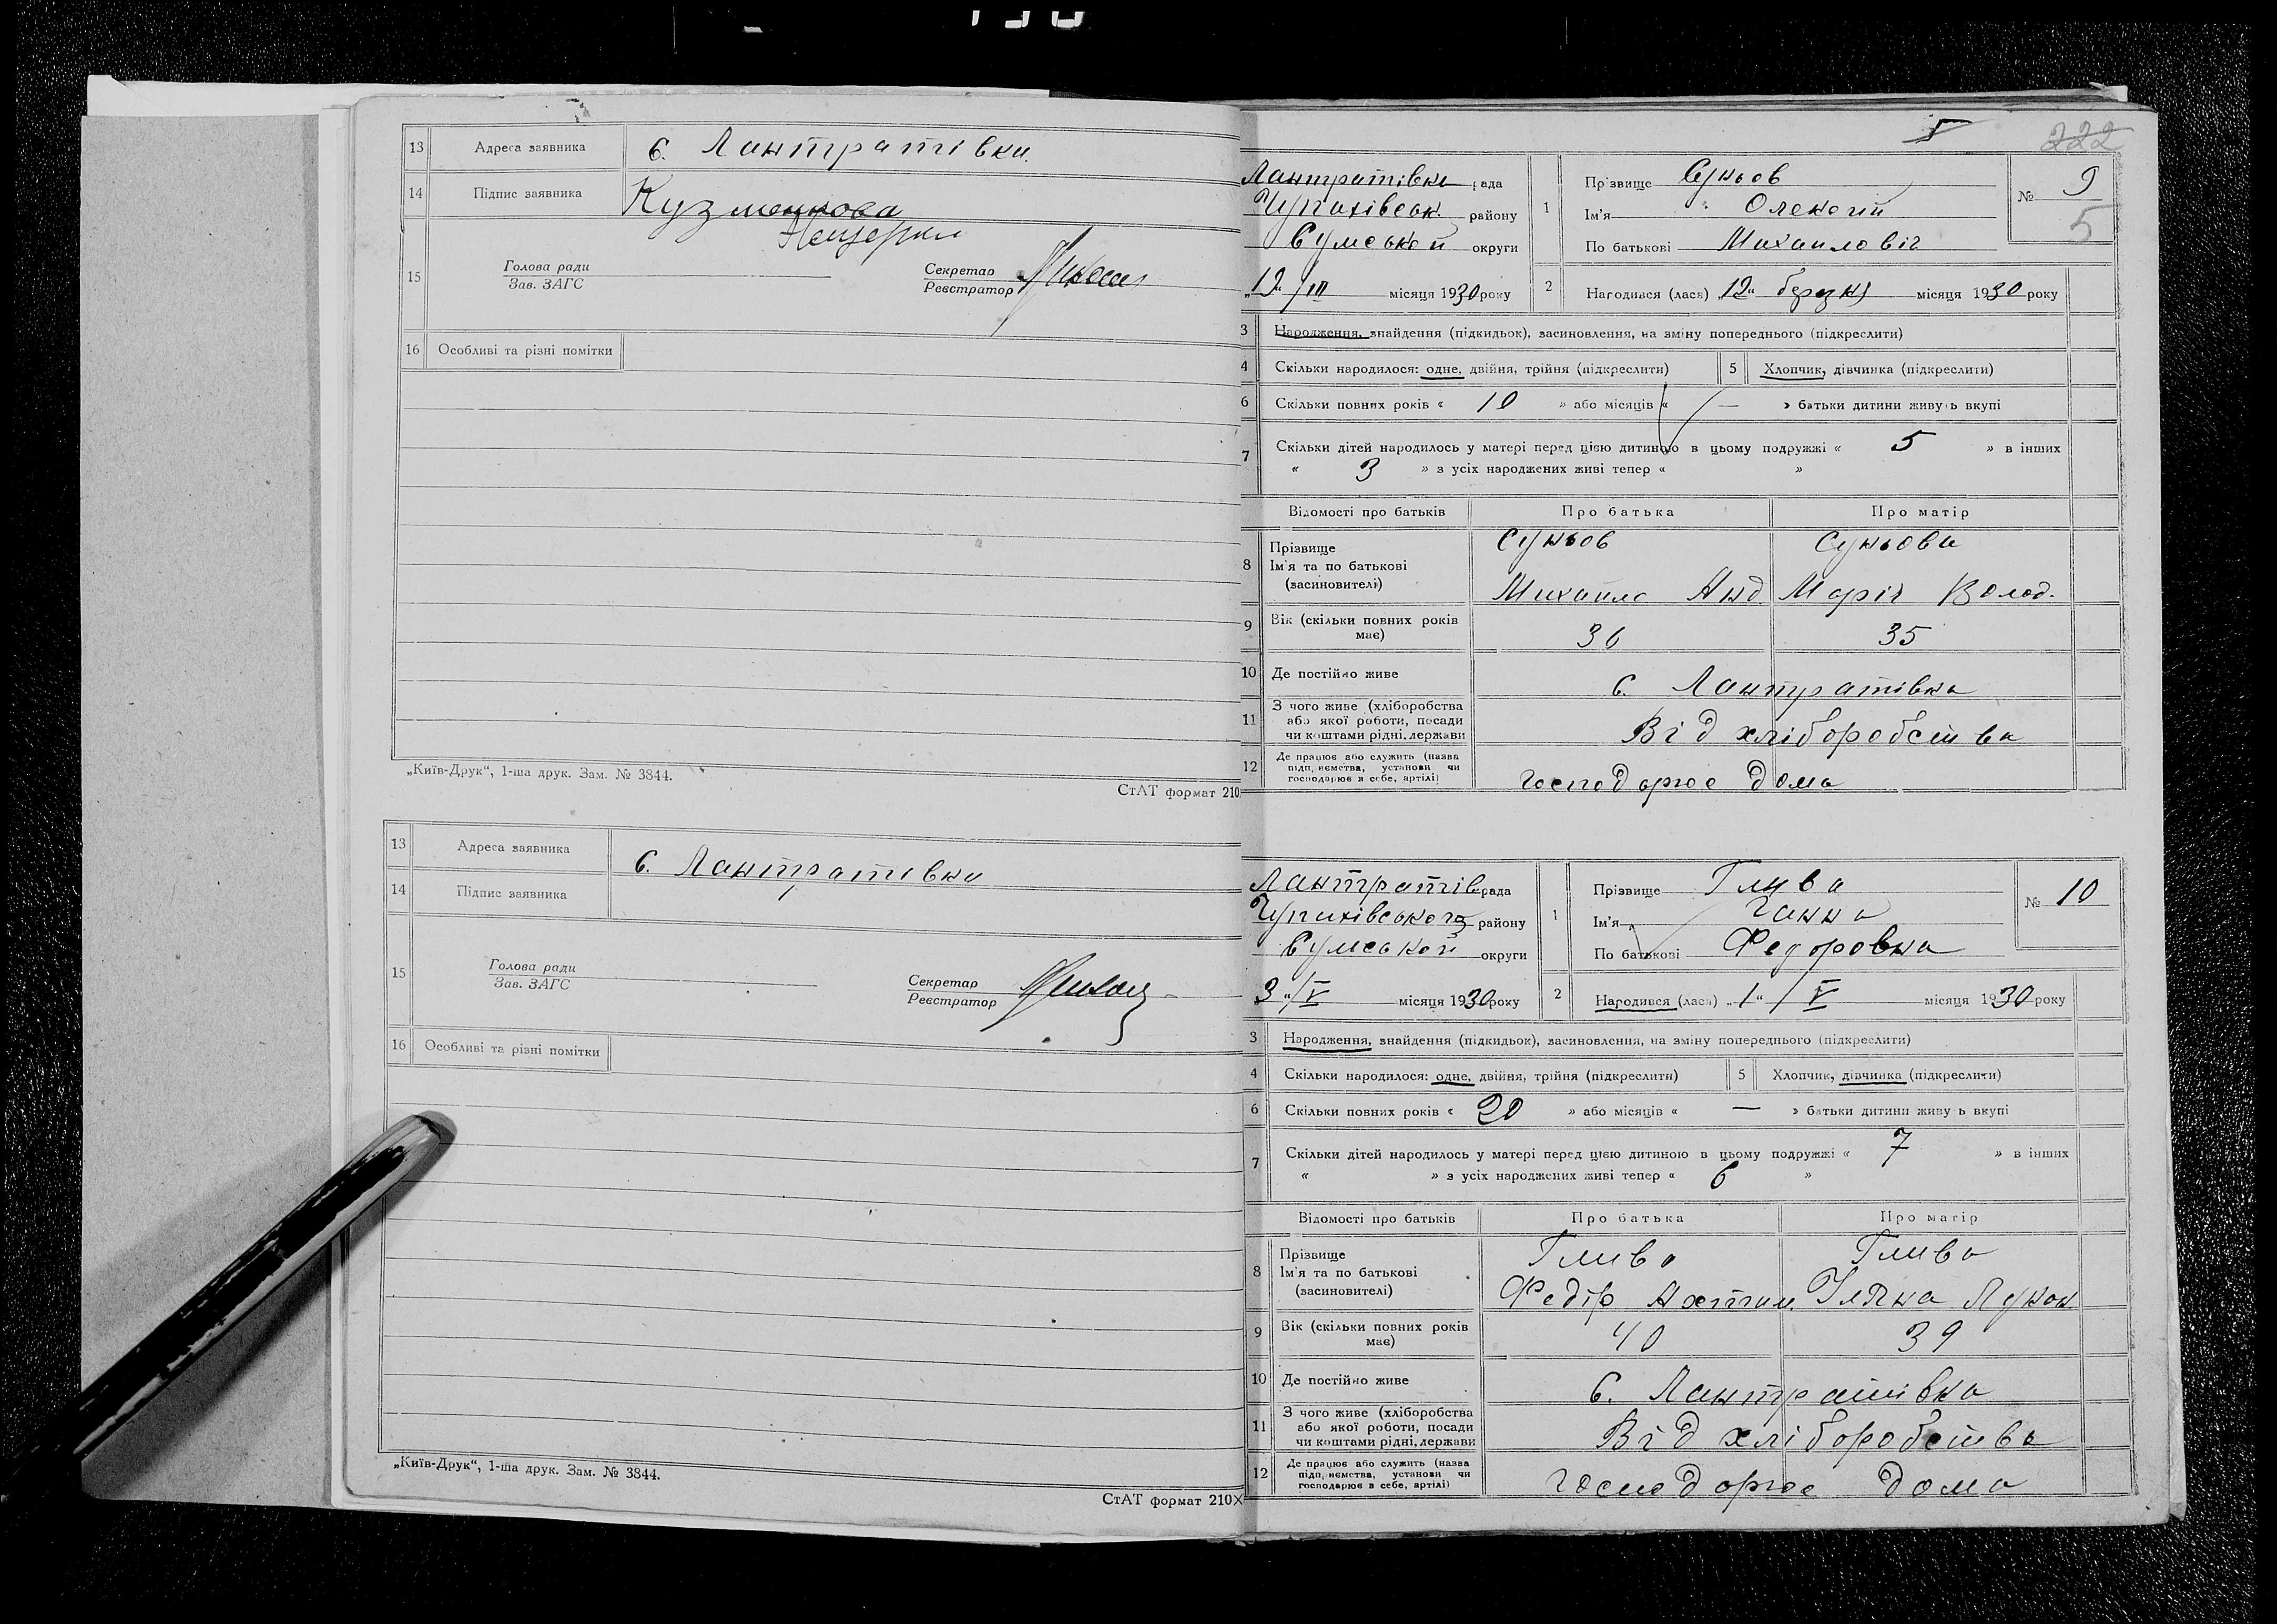 13 Адреса заявника с. Лантратівка.
14 Підпис заявника Кузменкова
15 Голова ради
Зав. ЗАГС
Секретар
Реєстратор
16 Особливі та різні помітки
„Київ-Друк“, 1-ша друк. Зам. № 3844.
СтАТ формат 210
13 Адреса заявника
с. Лантратівка
14 Підпис заявника
15 Голова ради
Зав. ЗАГС
Секретар
Реєстратор
16 Особливі та різні помітки
„Київ-Друк“, 1-ша друк. Зам. № 3844.
СтАТ формат 210×
5 222
Лантратівка рада
Чупахівськ. району
Сумської округи
1 Прізвище Суньов
Ім'я Олексій
По батькові Михайловіч
№ 9
5
12 / III місяця 1930 року
2 Народився (лася) „12“ березня місяця 1930 року
3 Народження, знайдення (підкидьок), засиновлення, на зміну попереднього (підкреслити)
4 Скільки народилося: одне, двійня, трійня (підкреслити) 5 Хлопчик, дівчинка (підкреслити)
6 Скільки повних років « 10 » або місяців « — » батьки дитини живуть вкупі
7 Скільки дітей народилось у матері перед цією дитиною в цьому подружжі « 5 » в інших
« 3 » з усіх народжених живі тепер « »
Відомості про батьків Про батька Про матір
8 Прізвище
Ім'я та по батькові
(засиновителі)
Суньов Суньова
Михайло Анд. Марія Волод.
9 Вік (скільки повних років
має) 36 35
10 Де постійно живе с. Лантратівка
11 З чого живе (хліборобства
або якої роботи, посади
чи коштами рідні, держави
Від хліборобства
12 Де працює або служить (назва
підприємства, установи чи
господарює в себе, артілі)
Господарює дома
Лантратів рада
Чупахівського району
Сумської округи
1 Прізвище Глива
Ім'я Ганна
По батькові Федоровна
№ 10
3 “/V місяця 1930 року
2 Народився (лася) „1“ / V місяця 1930 року
3 Народження, знайдення (підкидьок), засиновлення, на зміну попереднього (підкреслити)
4 Скільки народилося: одне, двійня, трійня (підкреслити) 5 Хлопчик, дівчинка (підкреслити)
6 Скільки повних років « 20 » або місяців « — » батьки дитини живу ь вкупі
7 Скільки дітей народилось у матері перед цією дитиною в цьому подружжі « 7 » в інших
« » з усіх народжених живі тепер « 6 »
Відомості про батьків Про батька Про матір
8 Прізвище
Ім'я та по батькові
(засиновителі)
Глива Глива
Федір Уляна
9 Вік (скільки повних років
має) 40 39
10 Де постійно живе с. Лантратівка
11 З чого живе (хліборобства
або якої роботи, посади
чи коштами рідні, держави
Від хліборобства
12 Де працює або служить (назва
підприємства, установи чи
господарює в себе, артілі)
Господарює дома